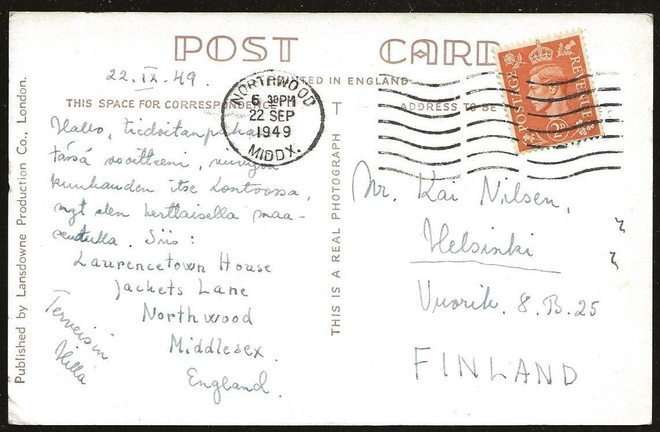 POST CARD
22.IX.49.
PRINTED IN ENGLAND
THIS SPACE FOR CORRESPONDENCE
ADDRESS TO BE
NORTHWOOD
6 30 PM
22 SEP
1949
MIDDX.
POSTAGE
REVENUE
2D
Hallo, tiedoitanpahan
tässä osoitteeni,
kuukauden itse Lontoossa,
nyt olen herttaisella maa-
seudulla. Siis:
Laurencetown House
Jackets Lane
Northwood
Middlesex.
England.
Terveisin
Hilla
Mr. Kai Nilsen,
Helsinki
Vuorik. 8.B.25
FINLAND
THIS IS A REAL PHOTOGRAPH
Published by Lansdowne Production Co., London.